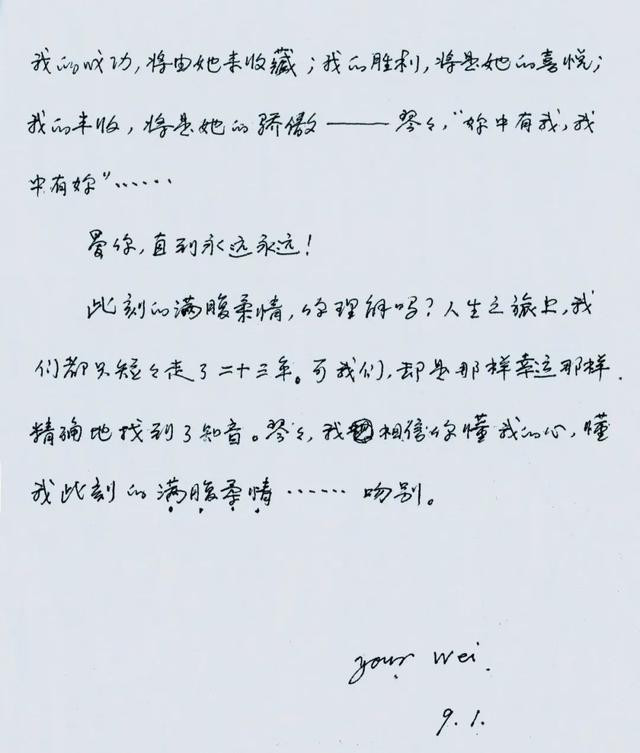 我的成功，将由她来收藏；我的胜利，将是她的喜悦；
我的丰收，将是她的骄傲——琴々，“妳中有我，我
中有妳”……
爱你，直到永远永远！
此刻的满腹柔情，你理解吗？人生之旅上，我
们都只短々走了二十三年。可我们，却是那样幸运那样
精确地找到了知音。琴々，我相信你懂我的心，懂
我此刻的满腹柔情……吻别。
your Wei.
9.1.